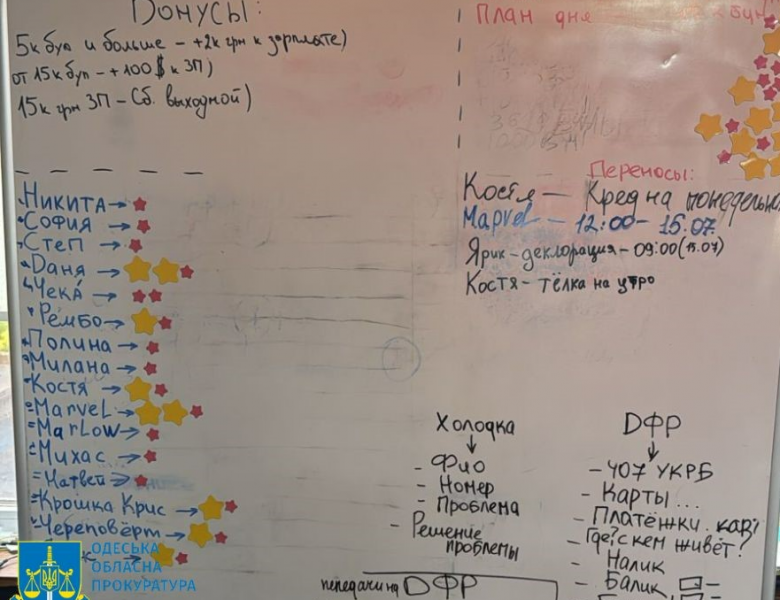 Бонусы:
5к буп и больше – +2к грн к зарплате)
от 15к буп – +100$ к ЗП)
15к грн ЗП – Сб. выходной)
План дня
Переносы:
Костя — Кред на понедельн
Marvel – 12:00 – 15.07
Ярик – декларация – 09:00 (15.07)
Костя – тёлка на утро
Никита →
София →
Степ →
Даня →
Чека →
Рембо →
Полина →
Милана →
Костя →
Marvel →
Marlow →
Михас →
Матвей →
Крошка Крис →
Череповёрт →
Холодка
– Фио
– Номер
– Проблема
– Решение
проблемы
ДФР
– 407 УКРБ
– Карты...
– Платёжки
– Где? с кем живёт?
– Налик
– Балик
ДФР
ОДЕСЬКА
ОБЛАСНА
ПРОКУРАТУРА